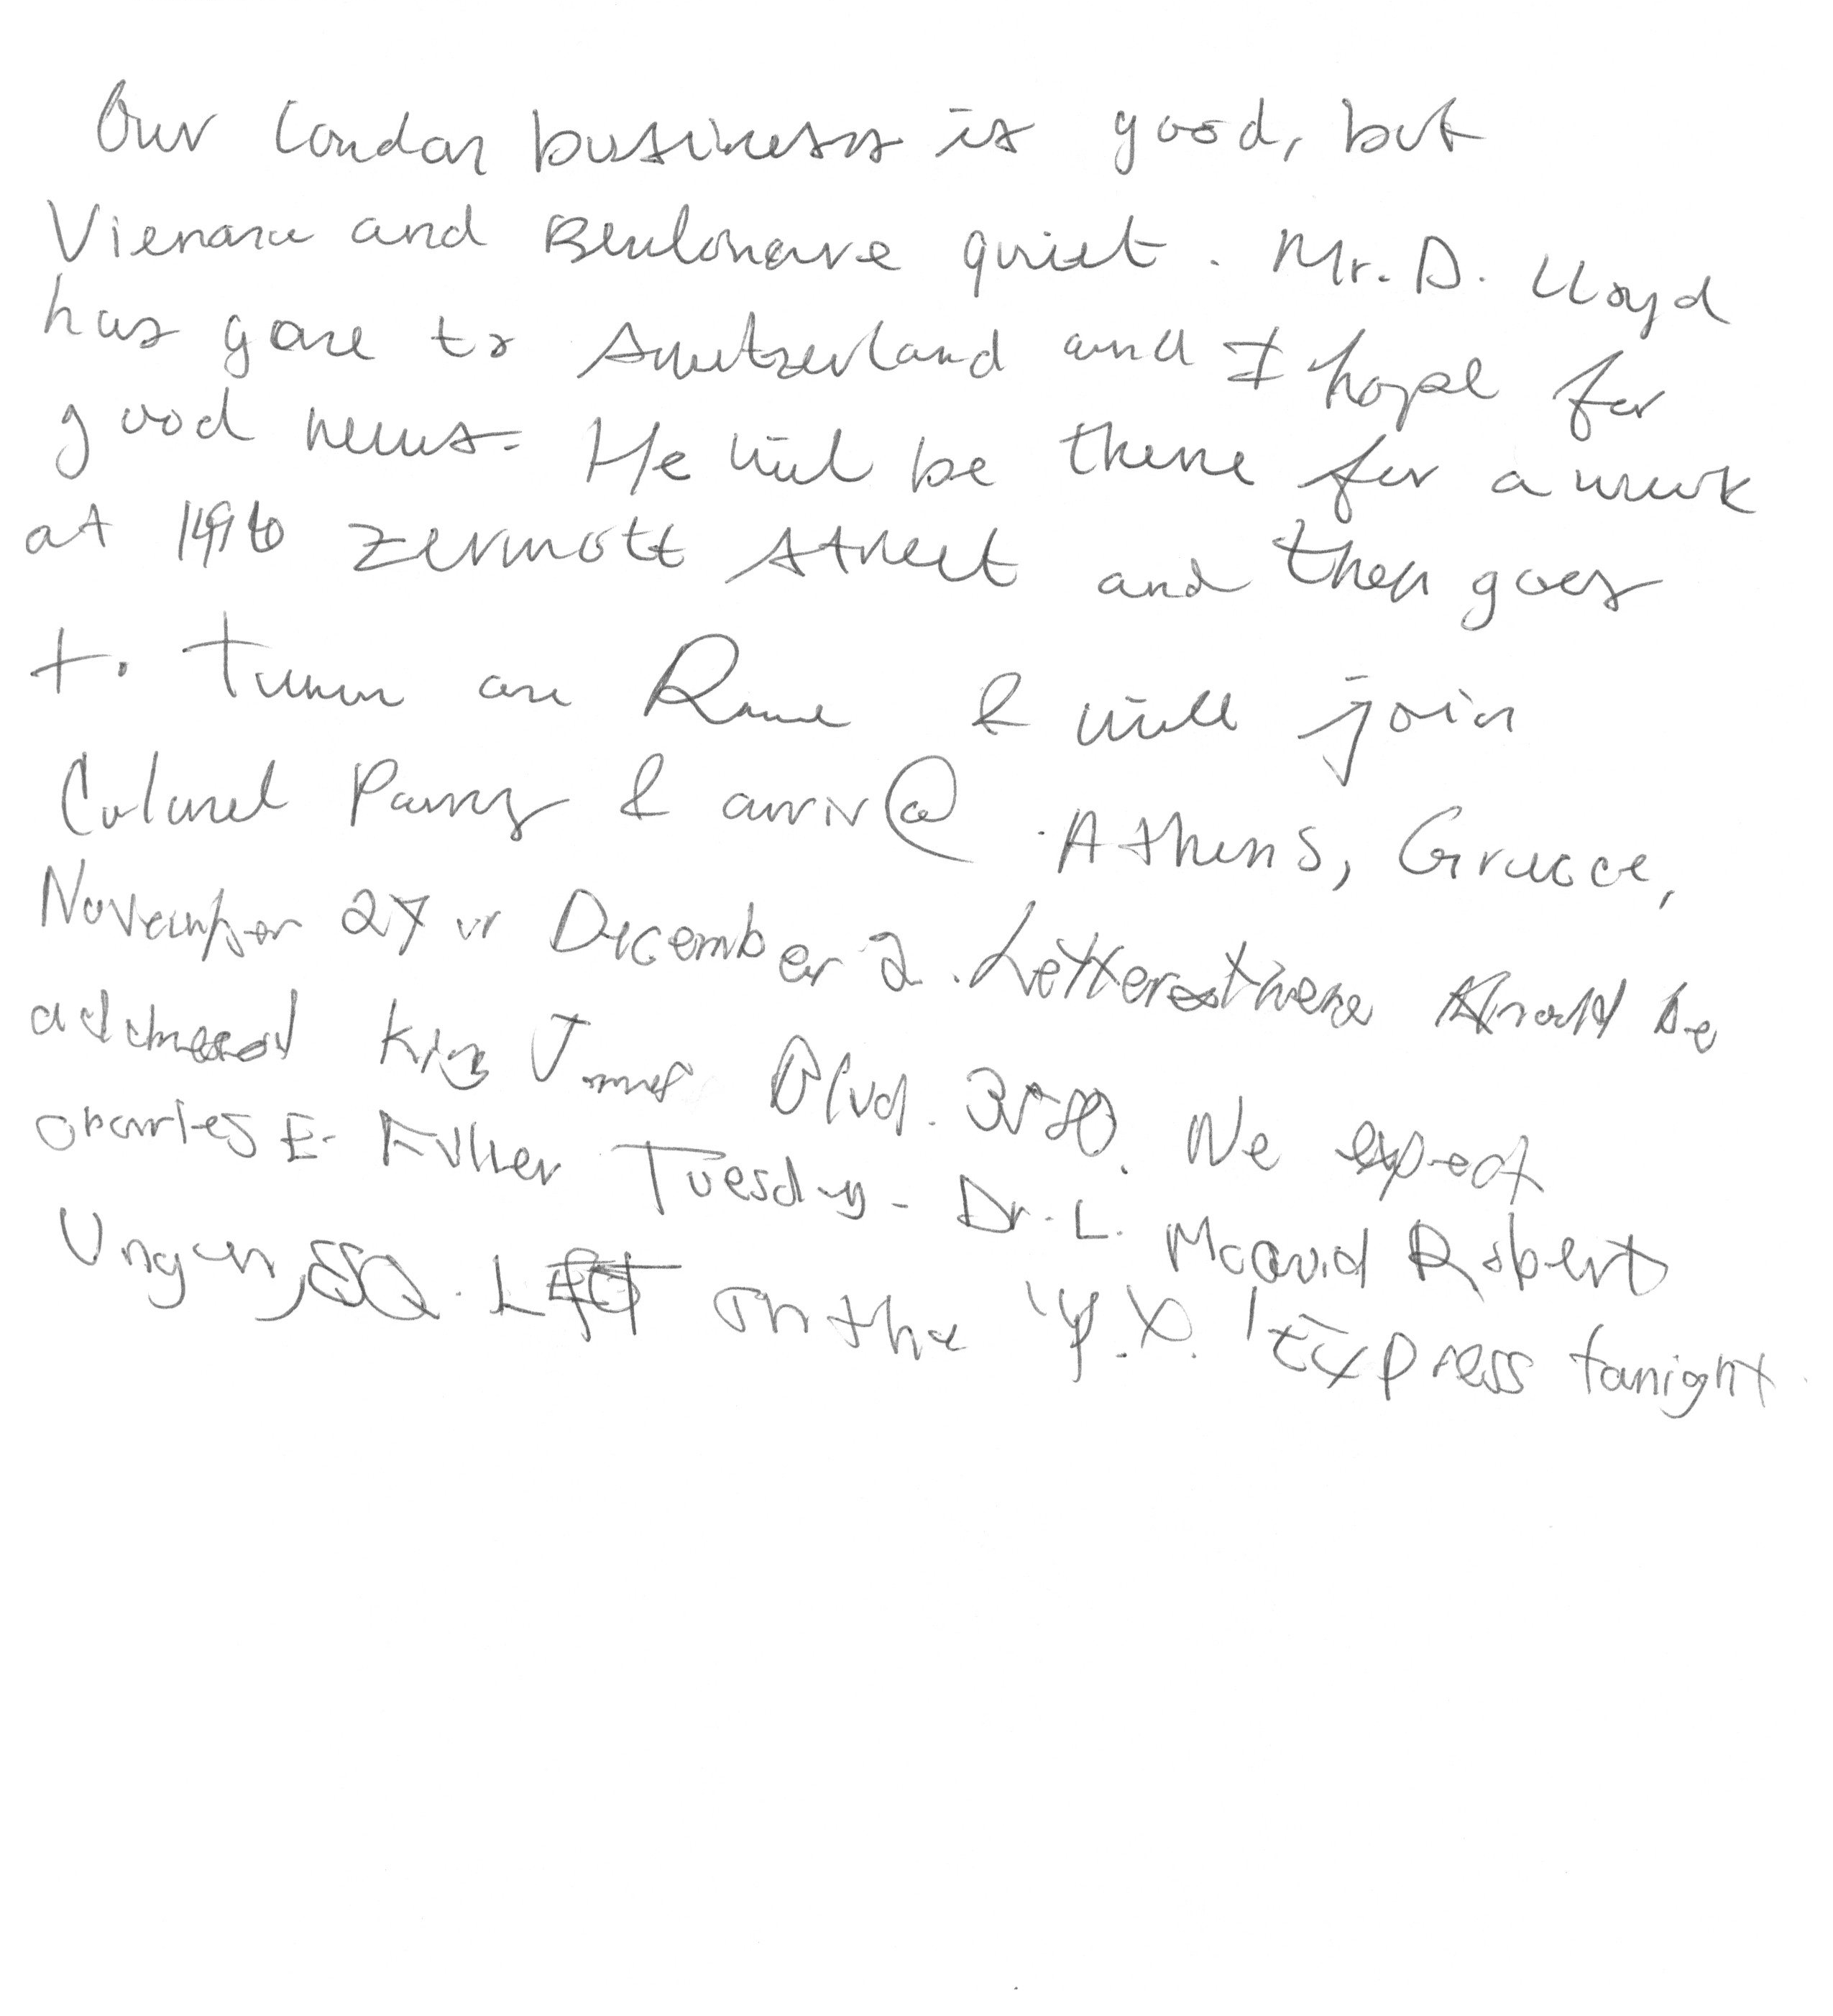 Our London business is good, but
Vienna and quiet. Mr. D. Lloyd
has gone to Switzerland and I hope for
good news. He will be there for a week
at 1496 Zermott Street and then goes
to Turin an Rome & will join
Colonel Parry & arriv@ Athens, Greece,
November 27 or December 2. Letters there should be
addressed King James Blvd. 3580. We expect
Charles E. Fuller Tuesday. Dr. L. McQuid Robert
Unger, ESQ. Left on the 'Y.X.' Express tonight.